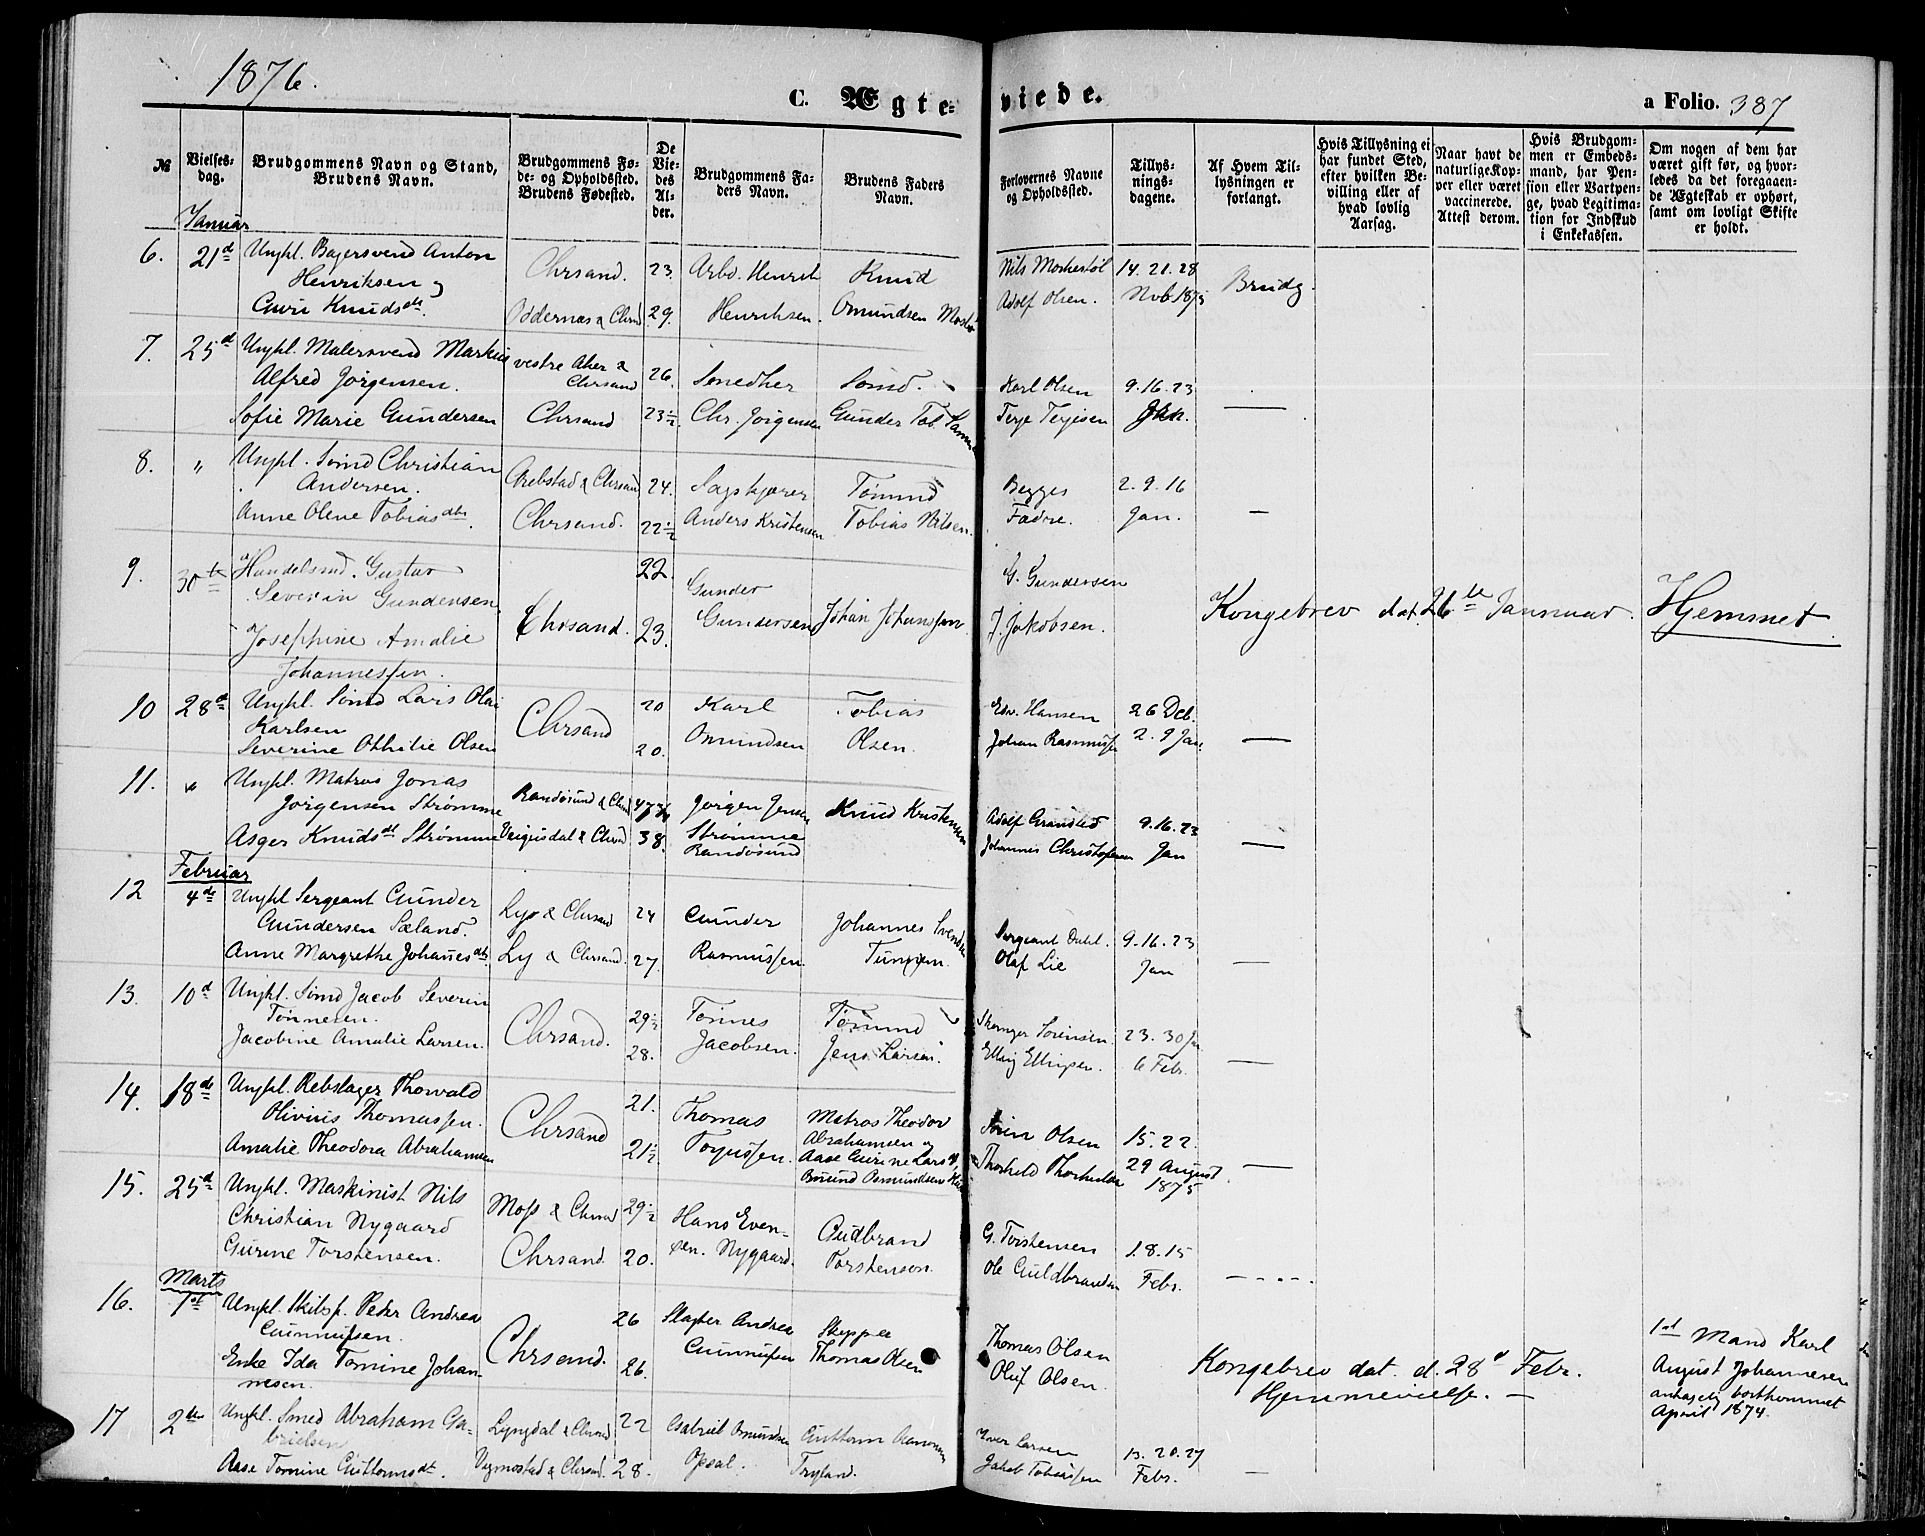 1876.
C. Ægte-
viede.
a Folio. 387
№
Vielses-
dag.
Brudgommens Navn og Stand,
Brudens Navn.
Brudgommens Fø-
de- og Opholdssted.
Brudens Fødested.
De
Vie-
des
Al-
der.
Brudgommens Fa-
ders Navn.
Brudens Faders
Navn.
Forlovernes Navne
og Opholdssted.
Tillys-
nings-
dagene.
Af Hvem Til-
lysningen er
forlangt.
Hvis Tillysning ei
har fundet Sted,
efter hvilken Be-
villing eller af
hvad lovlig
Aarsag.
Naar havt de
naturlige Kop-
per eller været
vaccinerede.
Attest derom.
Hvis Brudgom-
men er Embeds-
mand, har Pen-
sion eller Vartpen-
ge, hvad Legitima-
tion for Indskud
i Enkekassen.
Om nogen af dem har
været gift før, og hvor-
ledes da det foregaaen-
de Ægteskab er ophørt,
samt om lovligt Skifte
er holdt.
Januar
6. 21de Ungkl. Bagersvend Anton
Henriksen og
Guri Knudsdt.
Chrsand. 23.
Oddernæs & Chrsd 29.
Arbd. Henrik
Henriksen.
Knud
Omundsen
Nils
Adolf Olsen.
14. 21. 28
Novb 1875
Brudg.
7. 25de Ungkl. Malersvend Markus
Alfred Jørgensen.
Sofie Marie Gundersen
vestre Aker &
Chrsand 26.
Chrsand 23½.
Snedker
Chr. Jørgensen
Sømd.
Gunder Tob.
Karl Olsen
Terje Terjesen
9. 16. 23
Jan.
—
8. " Ungkl. Sømd Christian
Andersen.
Anne Olene Tobiasdtr.
& Chrsand 24.
Chrsand. 22½
Sagskjærer
Anders Kristensen
Tømmd
Tobias Nilsen.
Begges
Fædre.
2. 9. 16
Jan.
—
9. 30te Handelsmd. Gustav
Severin Gundersen
Josephine Amalie
Johannessen.
Chrsand.
22.
23.
Gunder
Gundersen
Johan Johannsen
G. Gundersen
J. Jakobsen.
Kongebrev dat. 26de Januar.
Hjemmet.
10 28de Ungkl. Sømd Lars Olai
Karlsen
Severine Othilie Olsen
Chrsand
20
20.
Karl
Omundsen
Tobias
Olsen.
Edv. Hansen
Johan Rasmussen
26 Dcb.
2. 9 Jan.
—
11. " Ungkl. Matros Jonas
Jørgensen Strømme
Asger Knudsdt Strømme
Randøsund & Chrsd
Vegusdal & Chrsd 38.
Jørgen Jensen
Strømme
Randøsund
Knud Kristensen
Adolf Gransted
Johannes Christofersen
9. 16. 23
Jan
—
Februar
12 4de Ungkl Sergeant Gunder
Gundersen Sæland.
Anne Margrethe Johanesdt.
Lye & Chrsand 24
Ly & Chrsand. 27.
Gunder
Rasmussen.
Johannes Svendsen
Tunheim.
Sergeant Dahl.
Olaf Lie
9. 16. 23
Jan
—
13. 10de Ungkl. Sømd Jacob Severin
Tønnesen.
Jacobine Amalie Larsen.
Chrsand.
29½
28.
Tønnes
Jacobsen.
Tømmd
Jens Larsen.
Sørensen.
Elling Ellingsen.
23. 30 Jan
6 Febr.
—
14. 18de Ungkl. Rebslager Thorvald
Olivius Thomassen.
Amalie Theodora Abrahamsen
Chrsand
21.
21½
Thomas
Torjussen.
Matros Theodor
Abrahamsen og
Aase Gurine Larsdt
Omund Osmundsen
Sørin Olsen
Thorkeld Thorkeldsen
15. 22.
29 August
1875.
—
15. 25de Ungkl. Maskinist Nils
Christian Nygaard
Gurine Torstensen.
Moss & Chrsand 29½
Chrsand. 20.
Hans Even-
sen. Nygaard.
Gudbrand
Torstenson.
G. Torstensen
Ole Guldbrandsen
1. 8. 15
Febr.
—
Marts
16. 1st Ungkl. Skibsf. Peter Andreas
Gunnufsen.
Enke Ida Tomine Johan-
nesen.
Chrsand.
26
26.
Slagter Andreas
Gunnufsen
Skipper
Thomas Olsen
Thomas Olsen
Oluf Olsen.
Kongebrev dat. d. 28d Febr.
Hjemmevielse. —
1st Mand Karl
August Johannesen
antagelig bortkommet
April 1874.
17 2den Ungkl. Smed Abraham Ga-
brielsen
Aase Tomine Guttormsdt.
Lyngdal & Chrsand 22
Vigmostad & Chrsand. 28.
Gabriel Omundsen
Opsal.
Guttorm Aanonsen
Tryland.
Iver Larsen
Jakob Tobiassen
13. 20. 27
Febr.
—